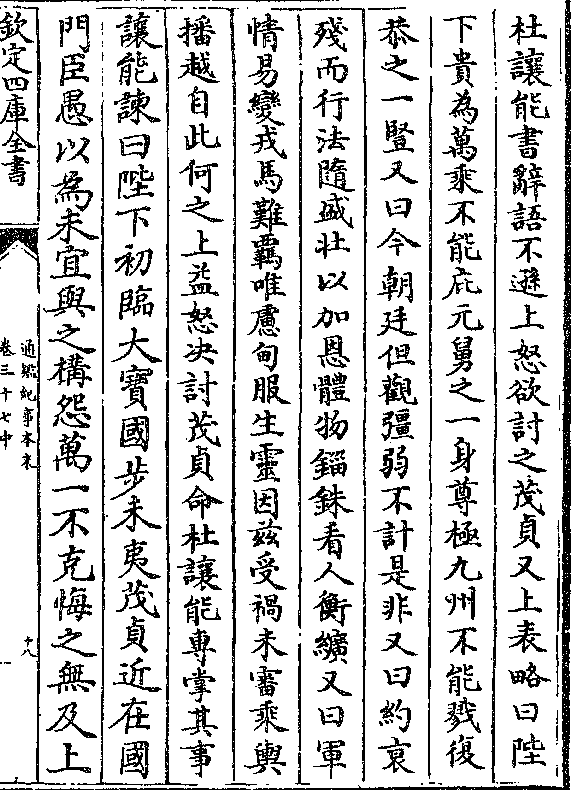 杜讓能書辭語不遜上怒欲討之茂貞又上表略曰陛
下貴為萬乘不能庇元舅之一身尊極九州不能戮復
恭之一豎又曰今朝廷但觀彊弱不計是非又曰約衰
殘而行法隨盛壯以加恩體物錙銖看人衡纊又曰軍
情易變戎馬難羈唯慮甸服生靈因茲受禍未審乘輿
播越自此何之上益怒決討茂貞命杜讓能專掌其事
讓能諫曰陛下初臨大寶國步未夷茂貞近在國
門臣愚以為未宜與之構怨萬一不克悔之無及上
欽定四庫全書
通鑑紀事本末
卷三十七中
十八